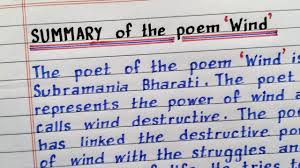 SUMMARY of the poem 'Wind'
The poet of the poem 'Wind' is
Subramania Bharati. The poet
represents the power of wind a
calls wind destructive. The poe
has linked the destructive po
of wind with the struggles an
of life